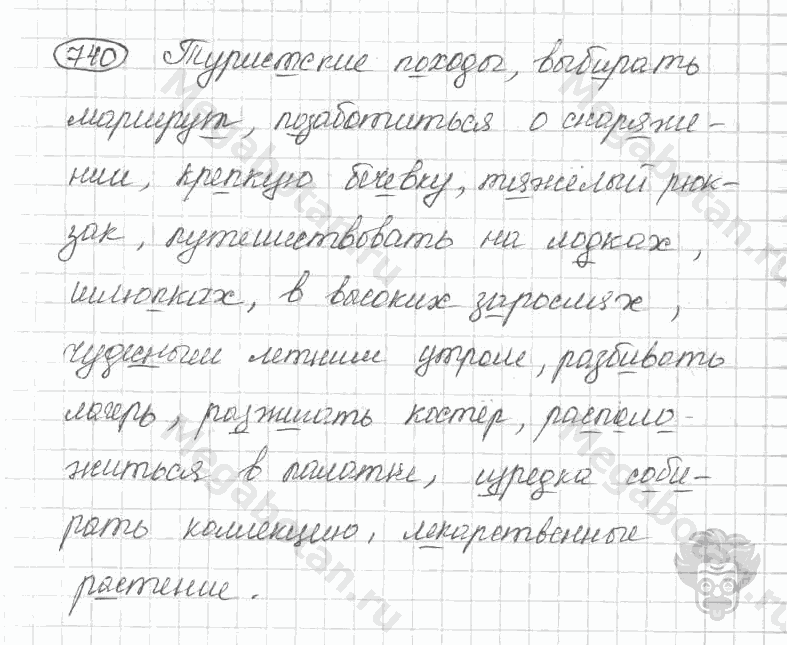 740 Туристские походы, выбирать
маршрут, позаботиться о снаряже-
нии, крепкую бечевку, тяжёлый рюк-
зак, путешествовать на лодках,
шлюпках, в высоких зарослях,
чудесным летним утром, разбивать
лагерь, разжигать костёр, располо-
житься в палатке, изредка соби-
рать коллекцию, лекарственные
растение.
Megabotan.ru
Megabotan.ru
Megabotan.ru
Megabotan.ru